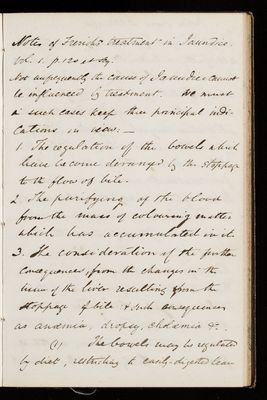 Notes of Frerichs treatment in Jaundice.
Vol. 1. p. 120 et seq.
Not unfrequently the cause of Jaundice cannot
be influenced by treatment. We must
in such cases keep three principal indi-
cations in view. —
1 The regulation of the bowels which
have become deranged by the stoppage
to the flow of bile.
2 The purifying of the blood
from the mass of colouring matter
which has accumulated in it.
3. The consideration of the further
consequences, from the changes in the
tissue of the liver resulting from the
stoppage of bile & such consequences
as anæmia, dropsy, cholæmia &c.
(1) The bowels may be regulated
by diet, restricting to easily-digested lean